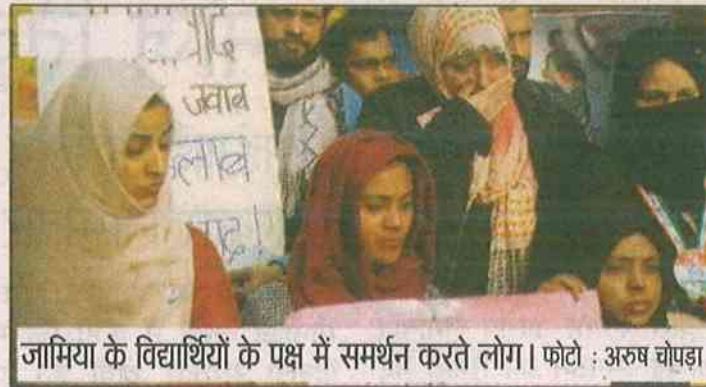 जवाब
जामिया के विद्यार्थियों के पक्ष में समर्थन करते लोग। फोटो : अरुष चोपड़ा